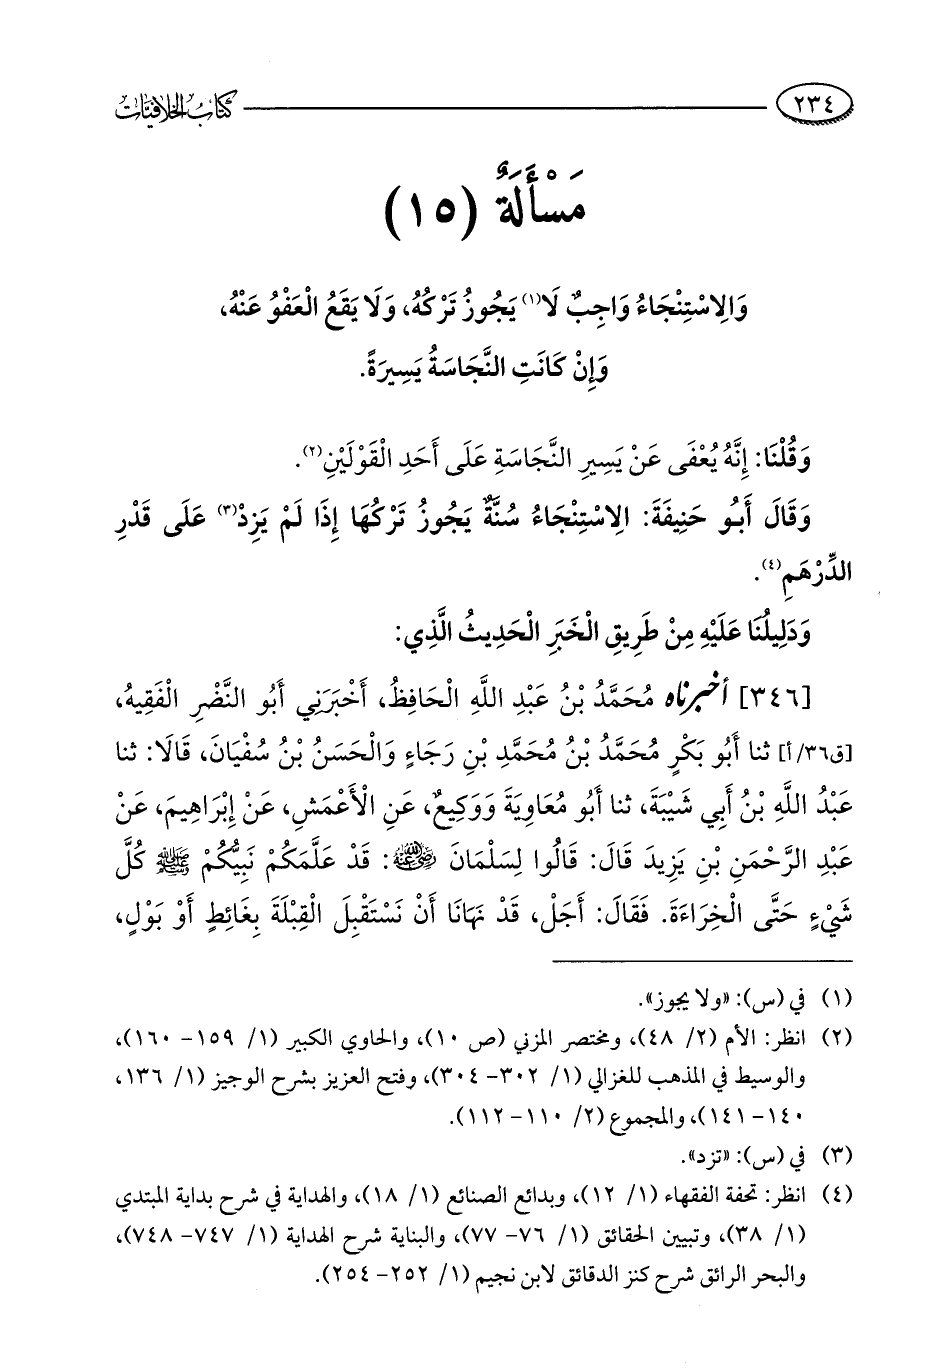 ٢٣٤ كتاب الخلافيات
مَسْأَلَةٌ (١٥)
وَالِاسْتِنْجَاءُ وَاجِبٌ لَا(١) يَجُوزُ تَرْكُهُ، وَلَا يَقَعُ الْعَفْوُ عَنْهُ،
وَإِنْ كَانَتِ النَّجَاسَةُ يَسِيرَةً.
وَقُلْنَا: إِنَّهُ يُعْفَى عَنْ يَسِيرِ النَّجَاسَةِ عَلَى أَحَدِ الْقَوْلَيْنِ(٢).
وَقَالَ أَبُو حَنِيفَةَ: الِاسْتِنْجَاءُ سُنَّةٌ يَجُوزُ تَرْكُهَا إِذَا لَمْ يَزِدْ(٣) عَلَى قَدْرِ
الدِّرْهَمِ(٤).
وَدَلِيلُنَا عَلَيْهِ مِنْ طَرِيقِ الْخَبَرِ الْحَدِيثُ الَّذِي:
[٣٤٦] أخبرناه مُحَمَّدُ بْنُ عَبْدِ اللَّهِ الْحَافِظُ، أَخْبَرَنِي أَبُو النَّضْرِ الْفَقِيهُ،
[ق٣٦/أ] ثنا أَبُو بَكْرٍ مُحَمَّدُ بْنُ مُحَمَّدِ بْنِ رَجَاءٍ وَالْحَسَنُ بْنُ سُفْيَانَ، قَالَا: ثنا
عَبْدُ اللَّهِ بْنُ أَبِي شَيْبَةَ، ثنا أَبُو مُعَاوِيَةَ وَوَكِيعٌ، عَنِ الْأَعْمَشِ، عَنْ إِبْرَاهِيمَ، عَنْ
عَبْدِ الرَّحْمَنِ بْنِ يَزِيدَ قَالَ: قَالُوا لِسَلْمَانَ رضي الله عنه: قَدْ عَلَّمَكُمْ نَبِيُّكُمْ ﷺ كُلَّ
شَيْءٍ حَتَّى الْخِرَاءَةَ. فَقَالَ: أَجَلْ، قَدْ نَهَانَا أَنْ نَسْتَقْبِلَ الْقِبْلَةَ بِغَائِطٍ أَوْ بَوْلٍ،
(١) في (س): «ولا يجوز».
(٢) انظر: الأم (٢/ ٤٨)، ومختصر المزني (ص ١٠)، والحاوي الكبير (١/ ١٥٩- ١٦٠)،
والوسيط في المذهب للغزالي (١/ ٣٠٢- ٣٠٤)، وفتح العزيز بشرح الوجيز (١/ ١٣٦،
١٤٠- ١٤١)، والمجموع (٢/ ١١٠- ١١٢).
(٣) في (س): «تزد».
(٤) انظر: تحفة الفقهاء (١/ ١٢)، وبدائع الصنائع (١/ ١٨)، والهداية في شرح بداية المبتدي
(١/ ٣٨)، وتبيين الحقائق (١/ ٧٦- ٧٧)، والبناية شرح الهداية (١/ ٧٤٧- ٧٤٨)،
والبحر الرائق شرح كنز الدقائق لابن نجيم (١/ ٢٥٢- ٢٥٤).